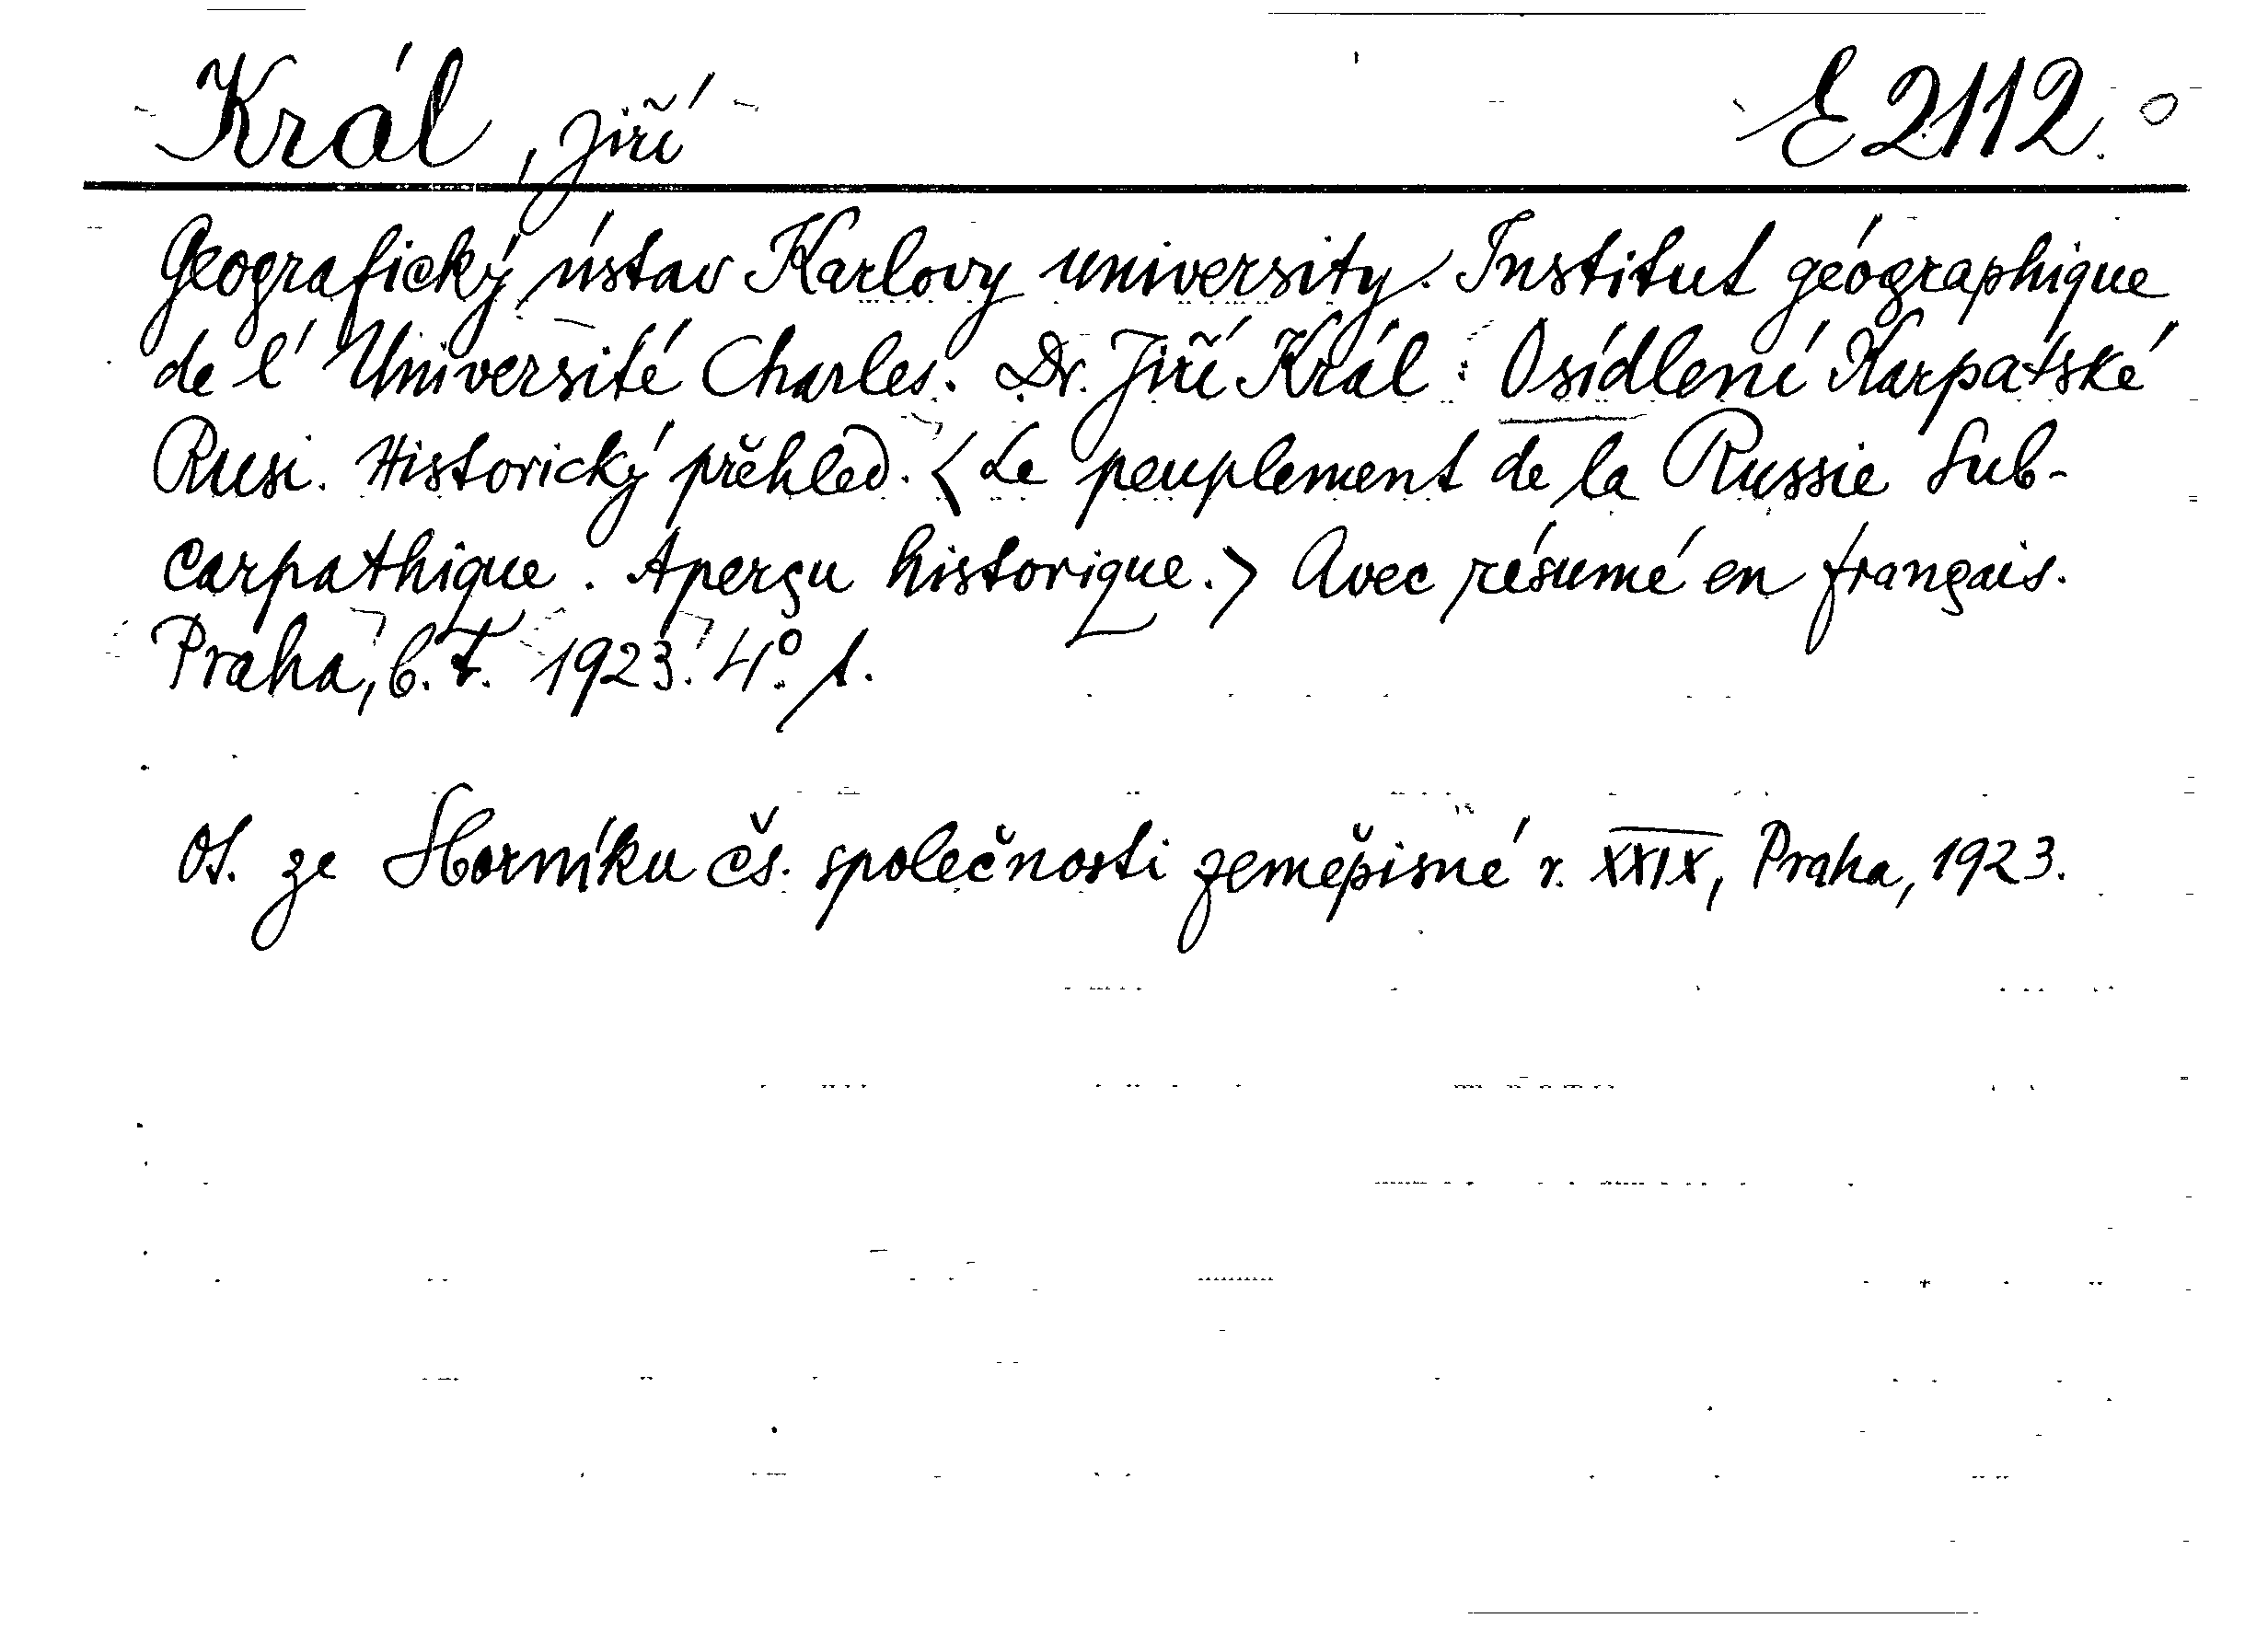 Král, Jiří E 2112.
Geografický ústav Karlovy university. Institut géographique
de l' Université Charles. Dr. Jiří Král: Osídlení Karpatské
Rusi. Historický přehled. (Le peuplement de la Russie Sub-
carpathique. Aperçu historique.) Avec résumé en français.
Praha, b. t. 1923. 4°.
ze Sborníku čs. společnosti zeměpisné r. XXIX, Praha, 1923.